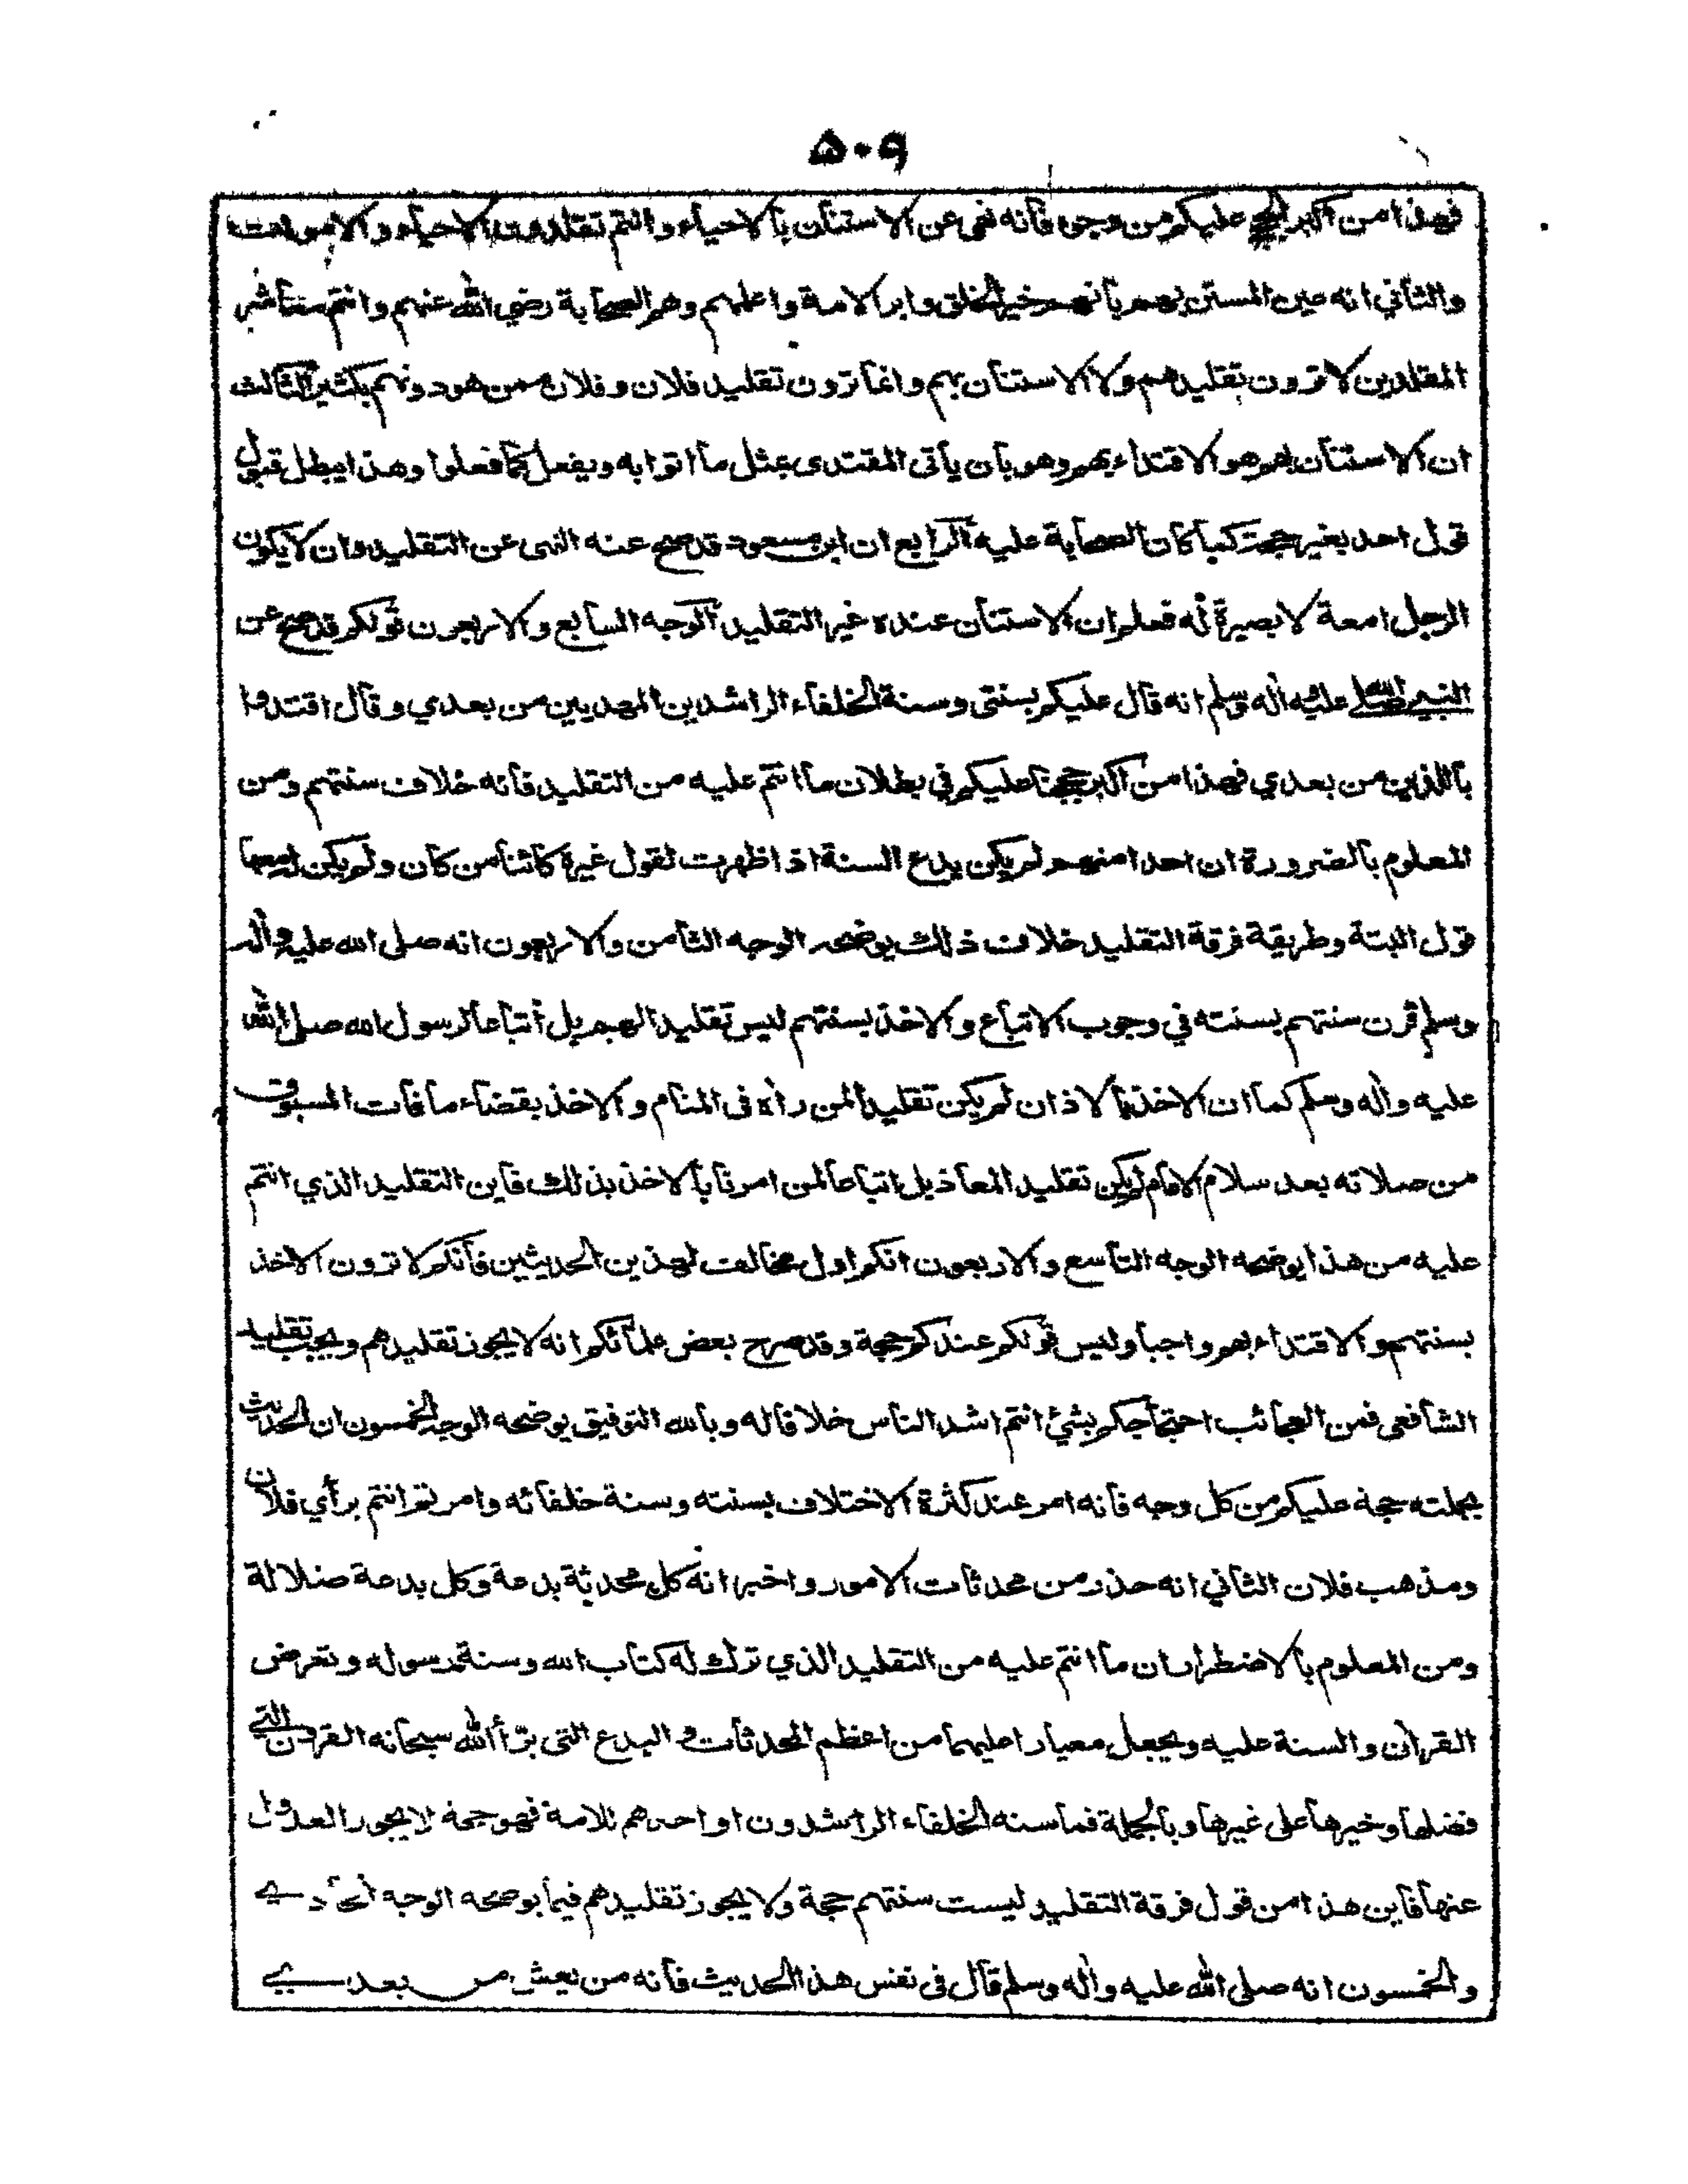 ۵۰۹
فهذا من اكبر الحجج عليكم من وجوه فانه نهى عن الاستنان بالاحياء وانتم تقلدون الاحياء والاموات
والثاني انه عين المستن بهم بانهم خير الخلق وابر الامة واعلمهم وهم الصحابة رضي الله عنهم وانتم معاشر
المقلدين لا ترون تقليدهم ولا الاستنان بهم وانما ترون تقليد فلان وفلان ممن هو دونهم بكثير الثالث
ان الاستنان بهم هو الاقتداء بهم وهو بان يأتى المقتدى بمثل ما اتوا به ويفعل كما فعلوا وهذا يبطل قبول
قول احد بغير حجة كما كان الصحابة عليه الرابع ان ابن مسعود قد صح عنه النهى عن التقليد وان لا يكون
الرجل امعة لا بصيرة له فعلم ان الاستنان عنده غير التقليد الوجه السابع والاربعون قولكم قد صح عن
النبي صلى الله عليه وآله وسلم انه قال عليكم بسنتى وسنة الخلفاء الراشدين المهديين من بعدي وقال اقتدوا
باللذين من بعدي فهذا من اكبر حججنا عليكم في بطلان ما انتم عليه من التقليد فانه خلاف سنتهم ومن
المعلوم بالضرورة ان احدا منهم لم يكن يدع السنة اذا ظهرت لقول غيره كائنا من كان ولم يكن له معها
قول البتة وطريقة فرقة التقليد خلاف ذلك يوضحه الوجه الثامن والاربعون انه صلى الله عليه وآله
وسلم قرن سنتهم بسنته في وجوب الاتباع والاخذ بسنتهم ليس تقليدا لهم بل اتباعا لرسول الله صلى الله
عليه وآله وسلم كما ان الاخذ بالاذان لم يكن تقليدا لمن رآه فى المنام والاخذ بقضاء ما فات المسبوق
من صلاته بعد سلام الامام لم يكن تقليد المعاذ بل اتباعا لمن امرنا بالاخذ بذلك فاين التقليد الذي انتم
عليه من هذا يوضحه الوجه التاسع والاربعون انكم اول مخالف لهذين الحديثين فانكم لا ترون الاخذ
بسنتهم والاقتداء بهم واجبا وليس قولهم عندكم حجة وقد صرح بعض علمائكم انه لا يجوز تقليدهم ويجب تقليد
الشافعى فمن العجائب احتجاجكم بشئ انتم اشد الناس خلافا له وبالله التوفيق يوضحه الوجه الخمسون ان الحديث
بجملته حجة عليكم من كل وجه فانه امر عند كثرة الاختلاف بسنته وسنة خلفائه وامرتم انتم برأي فلان
ومذهب فلان الثاني انه حذر من محدثات الامور واخبر انه كل محدثة بدعة وكل بدعة ضلالة
ومن المعلوم بالاضطرار ان ما انتم عليه من التقليد الذي ترك له كتاب الله وسنة رسوله وتعرض
القرآن والسنة عليه ويجعل معيارا عليهما من اعظم المحدثات والبدع التى برأ الله سبحانه القرون التي
فضلها وخيرها على غيرها وبالجملة فما سنه الخلفاء الراشدون او احدهم للامة فهو حجة لا يجوز العدول
عنها فاين هذا من قول فرقة التقليد ليست سنتهم حجة ولا يجوز تقليدهم فيها يوضحه الوجه الحادي
والخمسون انه صلى الله عليه وآله وسلم قال فى نفس هذا الحديث فانه من يعش من بعدي